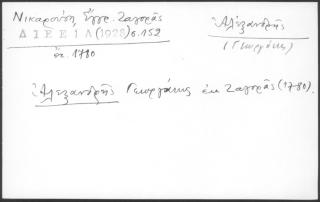 Νικαρούση Ἔγγρ. Ζαγορᾶς
ΔΙΕΕΙΛ (1928) σ. 152
ἐκ. 1780
Ἀλεξανδρῆς
(Γεωργάκης)
Ἀλεξανδρῆς Γεωργάκης ἐκ Ζαγορᾶς (1780).